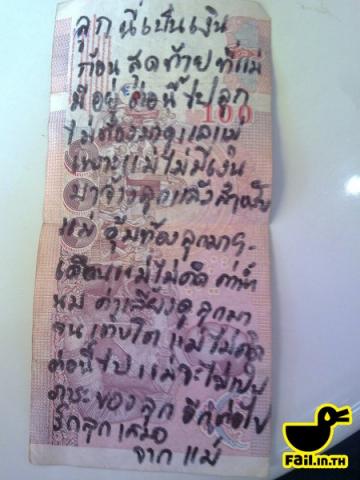 ลูก นี่เป็นเงิน
ก้อน สุดท้าย ที่แม่
มีอยู่ ต่อนี้ไป ลูก
100
ไม่ต้องมาดูแลแม่
เพราะแม่ไม่มีเงิน
มาจ้างลูกแล้ว สำหรับ
แม่ อุ้มท้องลูกมา 9
เดือนแม่ไม่คิด ค่าน้ำ
นม ค่าเลี้ยงดู ลูกมา
จน เติบโต แม่ไม่คิด
ต่อนี้ไป แม่จะไม่เป็น
ภาระของลูก อีกต่อไป
รักลูกเสมอ
จาก แม่
FAiL.in.TH